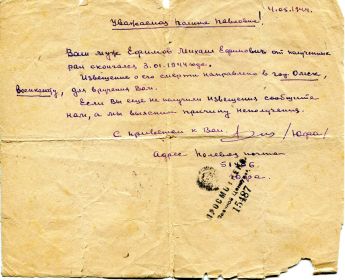 4.05.1944.
Уважаемая Полина Павловна!
Ваш муж Ефримов Михаил Ефимович от полученных
ран скончался 3.01.1944 года.
Извещение о его смерти направлено в гор. Омск,
Военкомату, для вручения Вам.
Если Вы еще не получили извещения сообщите
нам, а мы выясним причину неполучения.
С приветом к Вам /Юфа/
Адрес Полевая почта
Юфа.
ПРОСМОТРЕНО
Военной Цензурой
15487